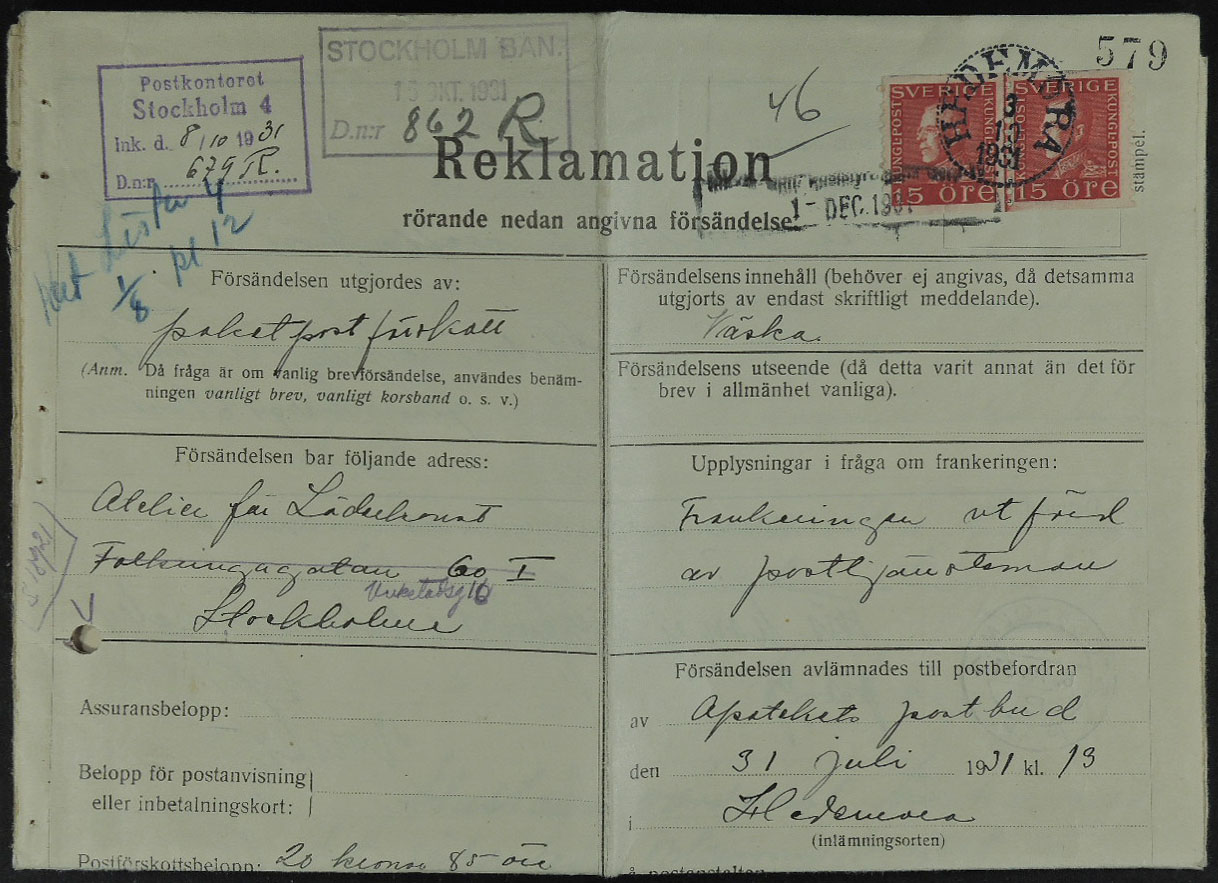 579
Postkontoret
Stockholm 4
Ink. d. 8/10 1931
D.n:r 679 R.
STOCKHOLM BAN.
15 OKT. 1931
D.n:r 862 R
46
SVERIGE SVERIGE
KUNGLPOST KUNGLPOST
15 öre 15 öre
HEDEMORA
3
10
1931
stämpel.
Reklamation
1 - DEC. 1931
rörande nedan angivna försändelse.
Lista 4
1/8 pl 12
Försändelsen utgjordes av:
paketpostförskott
(Anm. Då fråga är om vanlig brevförsändelse, användes benäm-
ningen vanligt brev, vanligt korsband o. s. v.)
Försändelsen bar följande adress:
Atelier för Läderkonst
Folkungagatan 60 I
16
Stockholm
Assuransbelopp:
Belopp för postanvisning
eller inbetalningskort:
Postförskottsbelopp: 20 kronor 85 öre
Försändelsens innehåll (behöver ej angivas, då detsamma
utgjorts av endast skriftligt meddelande).
Väska.
Försändelsens utseende (då detta varit annat än det för
brev i allmänhet vanliga).
Upplysningar i fråga om frankeringen:
Frankeringen utförd
av posttjänsteman
Försändelsen avlämnades till postbefordran
av Apotekets postbud
den 31 juli 1931 kl. 13
i Hedemora
(inlämningsorten)
å postanstalten